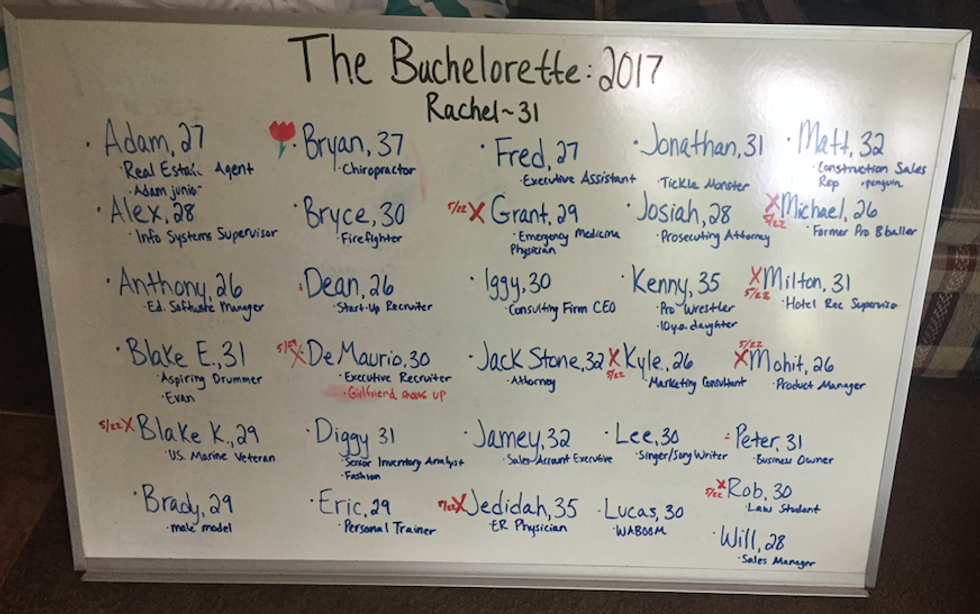 The Bachelorette: 2017
Rachel~31
· Adam, 27
· Real Esta Agent
· Adam junior
· Alex, 28
· Info Systems Supervisor
· Anthony, 26
· Ed. Software Manager
· Blake E., 31
· Aspiring Drummer
· Evan
5/22 X Blake K., 29
· U.S. Marine Veteran
· Brady, 29
· male model
· Bryan, 37
· Chiropractor
· Bryce, 30
· Firefighter
· Dean, 26
· Start-Up Recruiter
X DeMaurio, 30
· Executive Recruiter
· Girlfriend shows up
· Diggy 31
· Senior Inventory Analyst
· Fashion
· Eric, 29
· Personal Trainer
· Fred, 27
· Executive Assistant
5/22 X Grant, 29
· Emergency Medicine
Physician
· Iggy, 30
· Consulting Firm CEO
· Jack Stone, 32
· Attorney
· Jamey, 32
· Sales Account Executive
5/22 X Jedidah, 35
· ER Physician
· Jonathan, 31
· Tickle Monster
· Josiah, 28
· Prosecuting Attorney
· Kenny, 35
· Pro Wrestler
· 10 y.o. daughter
5/22 X Kyle, 26
· Marketing Consultant
· Lee, 30
· Singer/Song Writer
· Lucas, 30
· WABOOM
· Matt, 32
· Construction Sales
Rep · penguin
5/22 X Michael, 26
· Former Pro Bballer
5/22 X Milton, 31
· Hotel Rec Supervisor
5/22 X Mohit, 26
· Product Manager
· Peter, 31
· Business Owner
5/22 X Rob, 30
· Law Student
· Will, 28
· Sales Manager